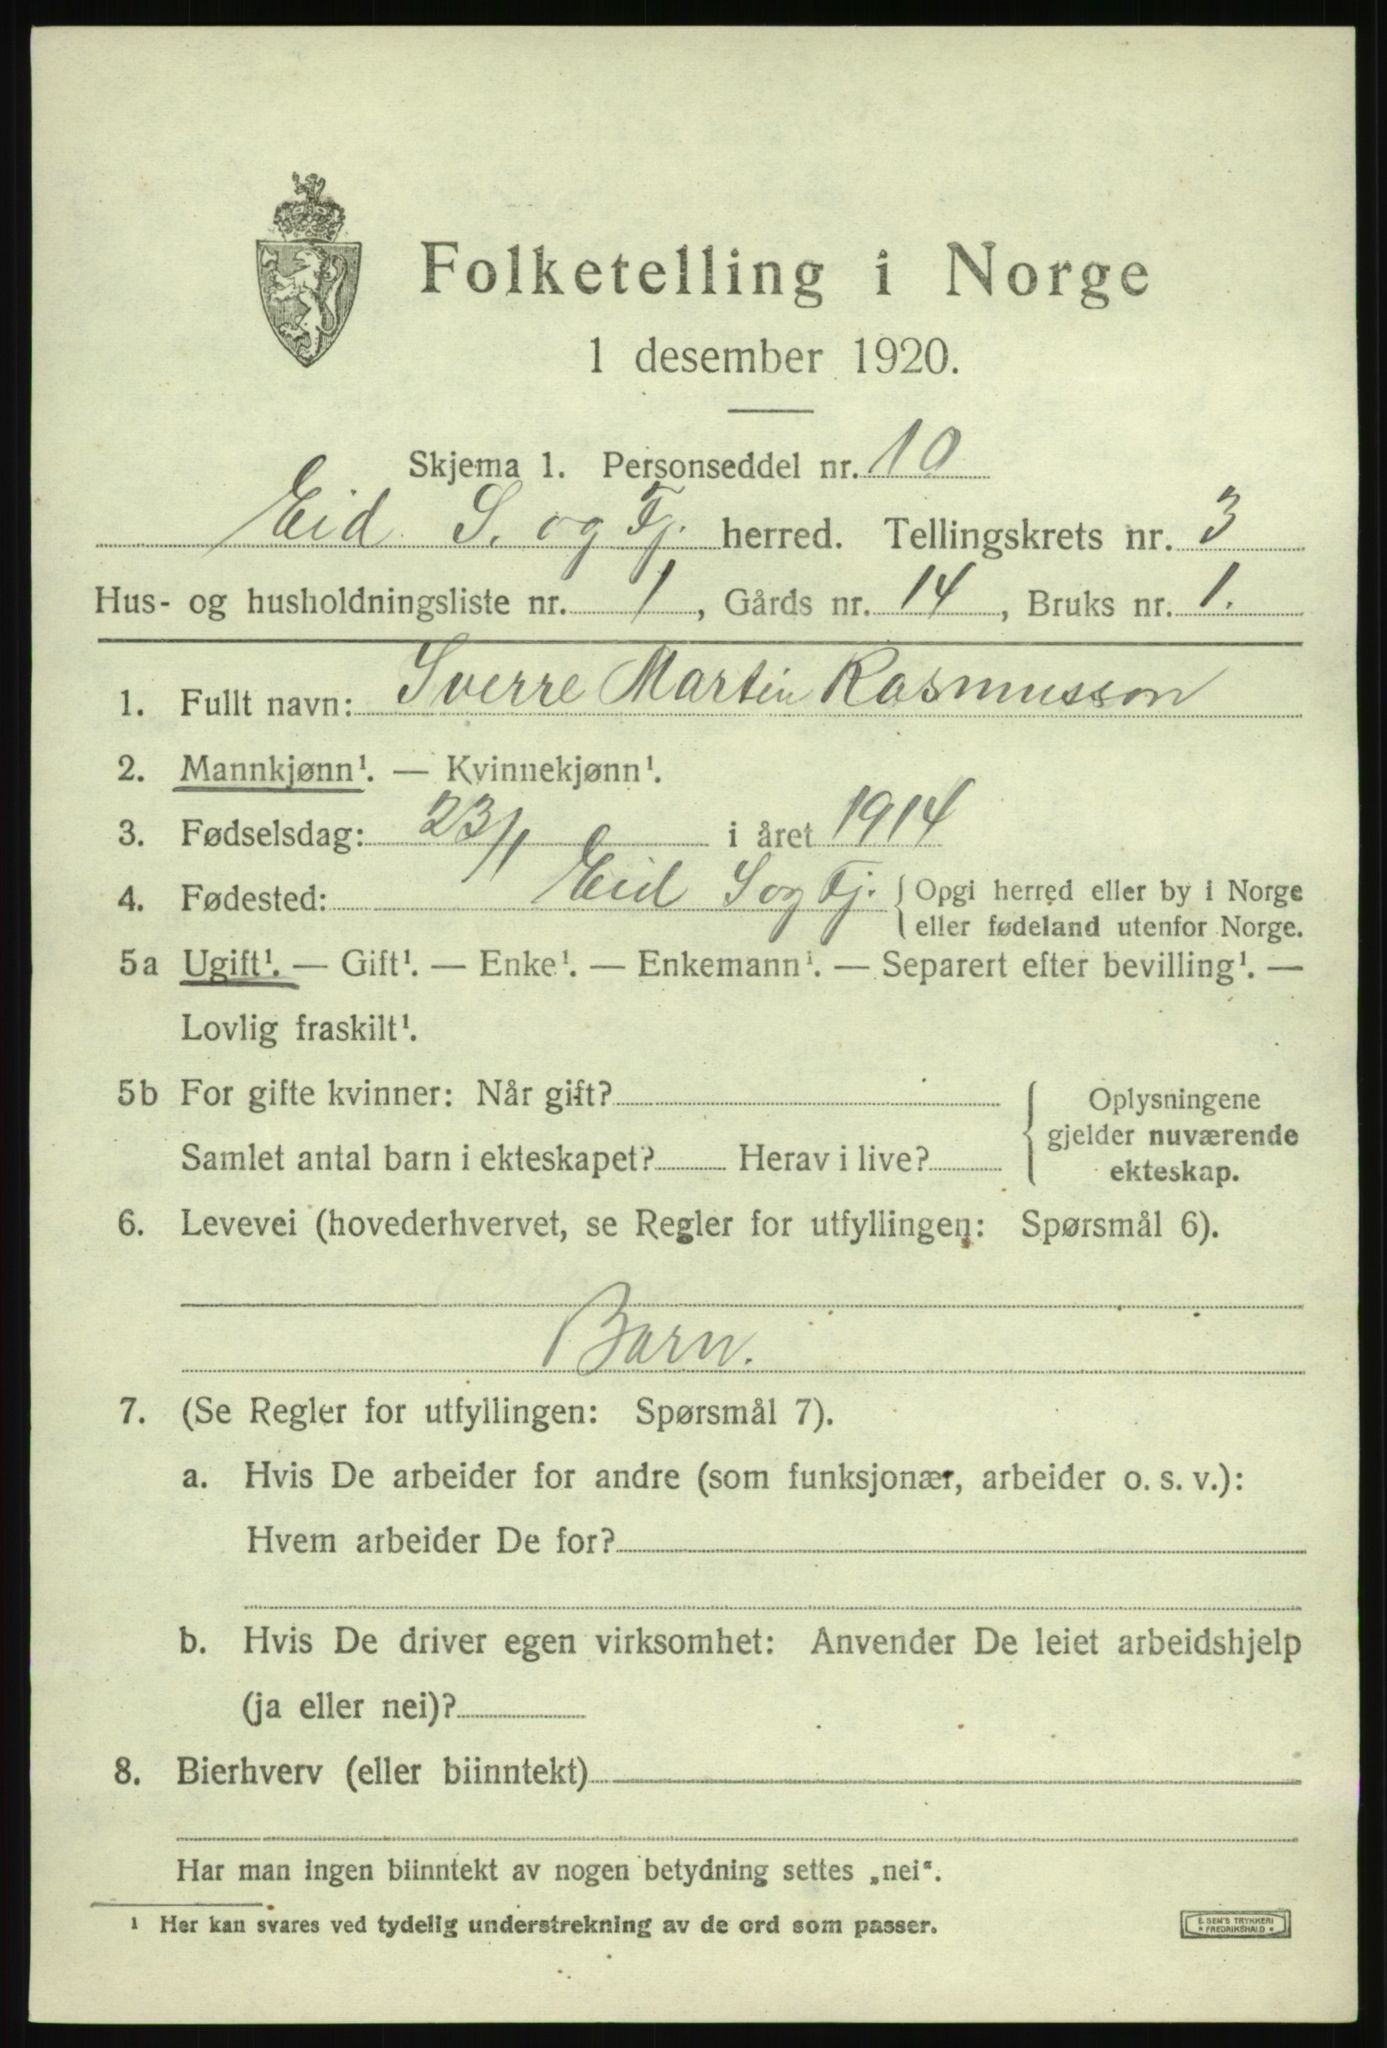 Folketelling i Norge
1 desember 1920.
Skjema 1. Personseddel nr. 10
Eid S. og Fj. herred. Tellingskrets nr. 3
Hus- og husholdningsliste nr. 1, Gårds nr. 14, Bruks nr. 1.
1. Fullt navn: Sverre Martin Rasmusson
2. Mannkjønn¹. — Kvinnekjønn¹.
3. Fødselsdag: 23/1 i året 1914
4. Fødested: Eid S og Fj. { Opgi herred eller by i Norge
eller fødeland utenfor Norge.
5a Ugift¹. — Gift¹. — Enke¹. — Enkemann¹. — Separert efter bevilling¹. —
Lovlig fraskilt¹.
5b For gifte kvinner: Når gift?
Samlet antal barn i ekteskapet? Herav i live?
{ Oplysningene
gjelder nuværende
ekteskap.
6. Levevei (hovederhvervet, se Regler for utfyllingen: Spørsmål 6).
Barn.
7. (Se Regler for utfyllingen: Spørsmål 7).
a. Hvis De arbeider for andre (som funksjonær, arbeider o. s. v.):
Hvem arbeider De for?
b. Hvis De driver egen virksomhet: Anvender De leiet arbeidshjelp
(ja eller nei)?
8. Bierhverv (eller biinntekt)
Har man ingen biinntekt av nogen betydning settes „nei“.
¹ Her kan svares ved tydelig understrekning av de ord som passer.
E. SEM'S TRYKKERI
* FREDRIKSHALD *